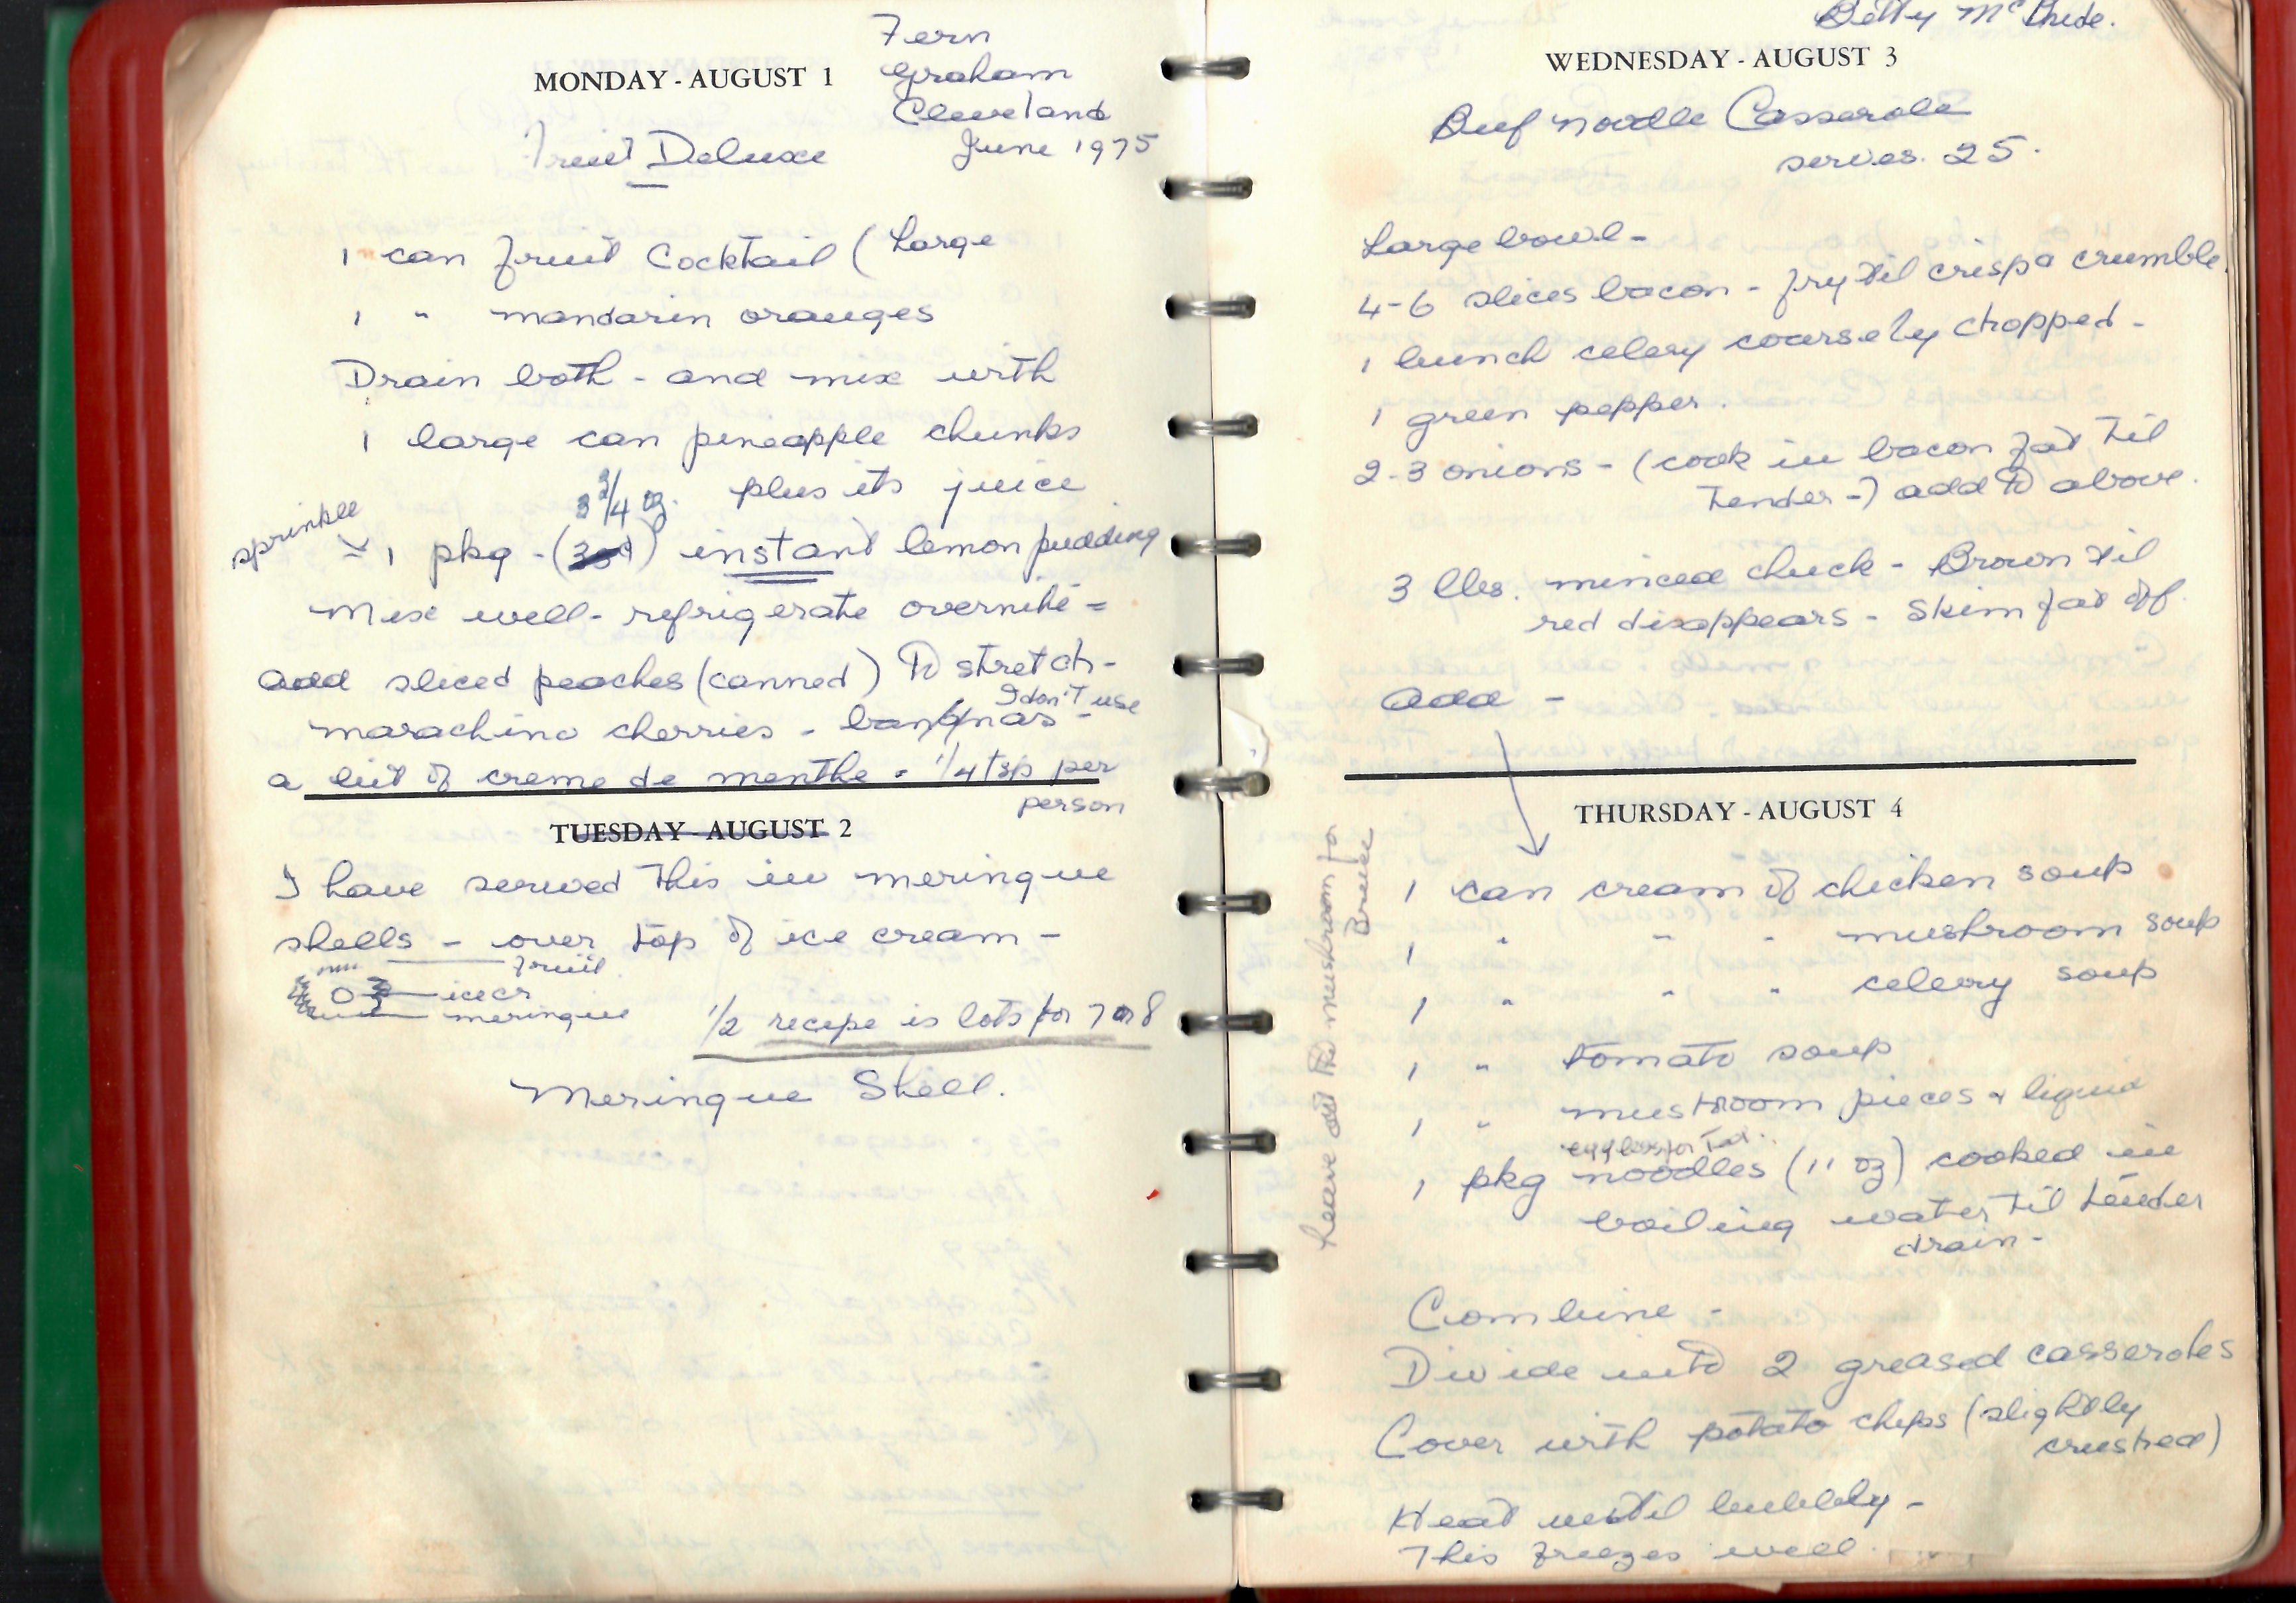 Fern
Graham
Cleveland
June 1975
MONDAY - AUGUST 1
Fruit Deluxe
1 can fruit Cocktail (Large
1 " mandarin oranges
Drain both - and mix with
1 large can pineapple chunks
plus its juice
3 3/4 oz.
sprinkle
1 pkg - ( ) instant lemon pudding
Mix well - refrigerate overnite -
add sliced peaches (canned) to stretch -
I don't use
marachino cherries - bananas -
a bit of creme de menthe - 1/4 tsp per
person
TUESDAY - AUGUST 2
I have served this in meringue
shells - over top of ice cream -
fruit
ice cr
meringue
1/2 recipe is lots for 7 or 8
Meringue Shell.
Betty McBride.
WEDNESDAY - AUGUST 3
Beef Noodle Casserole
serves 25.
Large bowl -
4-6 slices bacon - fry til crisp & crumble.
1 bunch celery coarsely chopped -
1 green pepper.
2-3 onions - (cook in bacon fat til
tender -) add to above.
3 lbs. minced chuck - Brown til
red disappears - Skim fat off.
add -
THURSDAY - AUGUST 4
1 can cream of chicken soup
1 " " " mushroom soup
1 " " " celery soup
1 " tomato soup
1 " mushroom pieces & liquid
1 pkg noodles (11 oz) cooked in
boiling water til tender
drain -
Leave out the mushroom for
Bruce
Combine -
Divide into 2 greased casseroles
Cover with potato chips (slightly
crushed)
Heat until bubbly -
This freezes well.